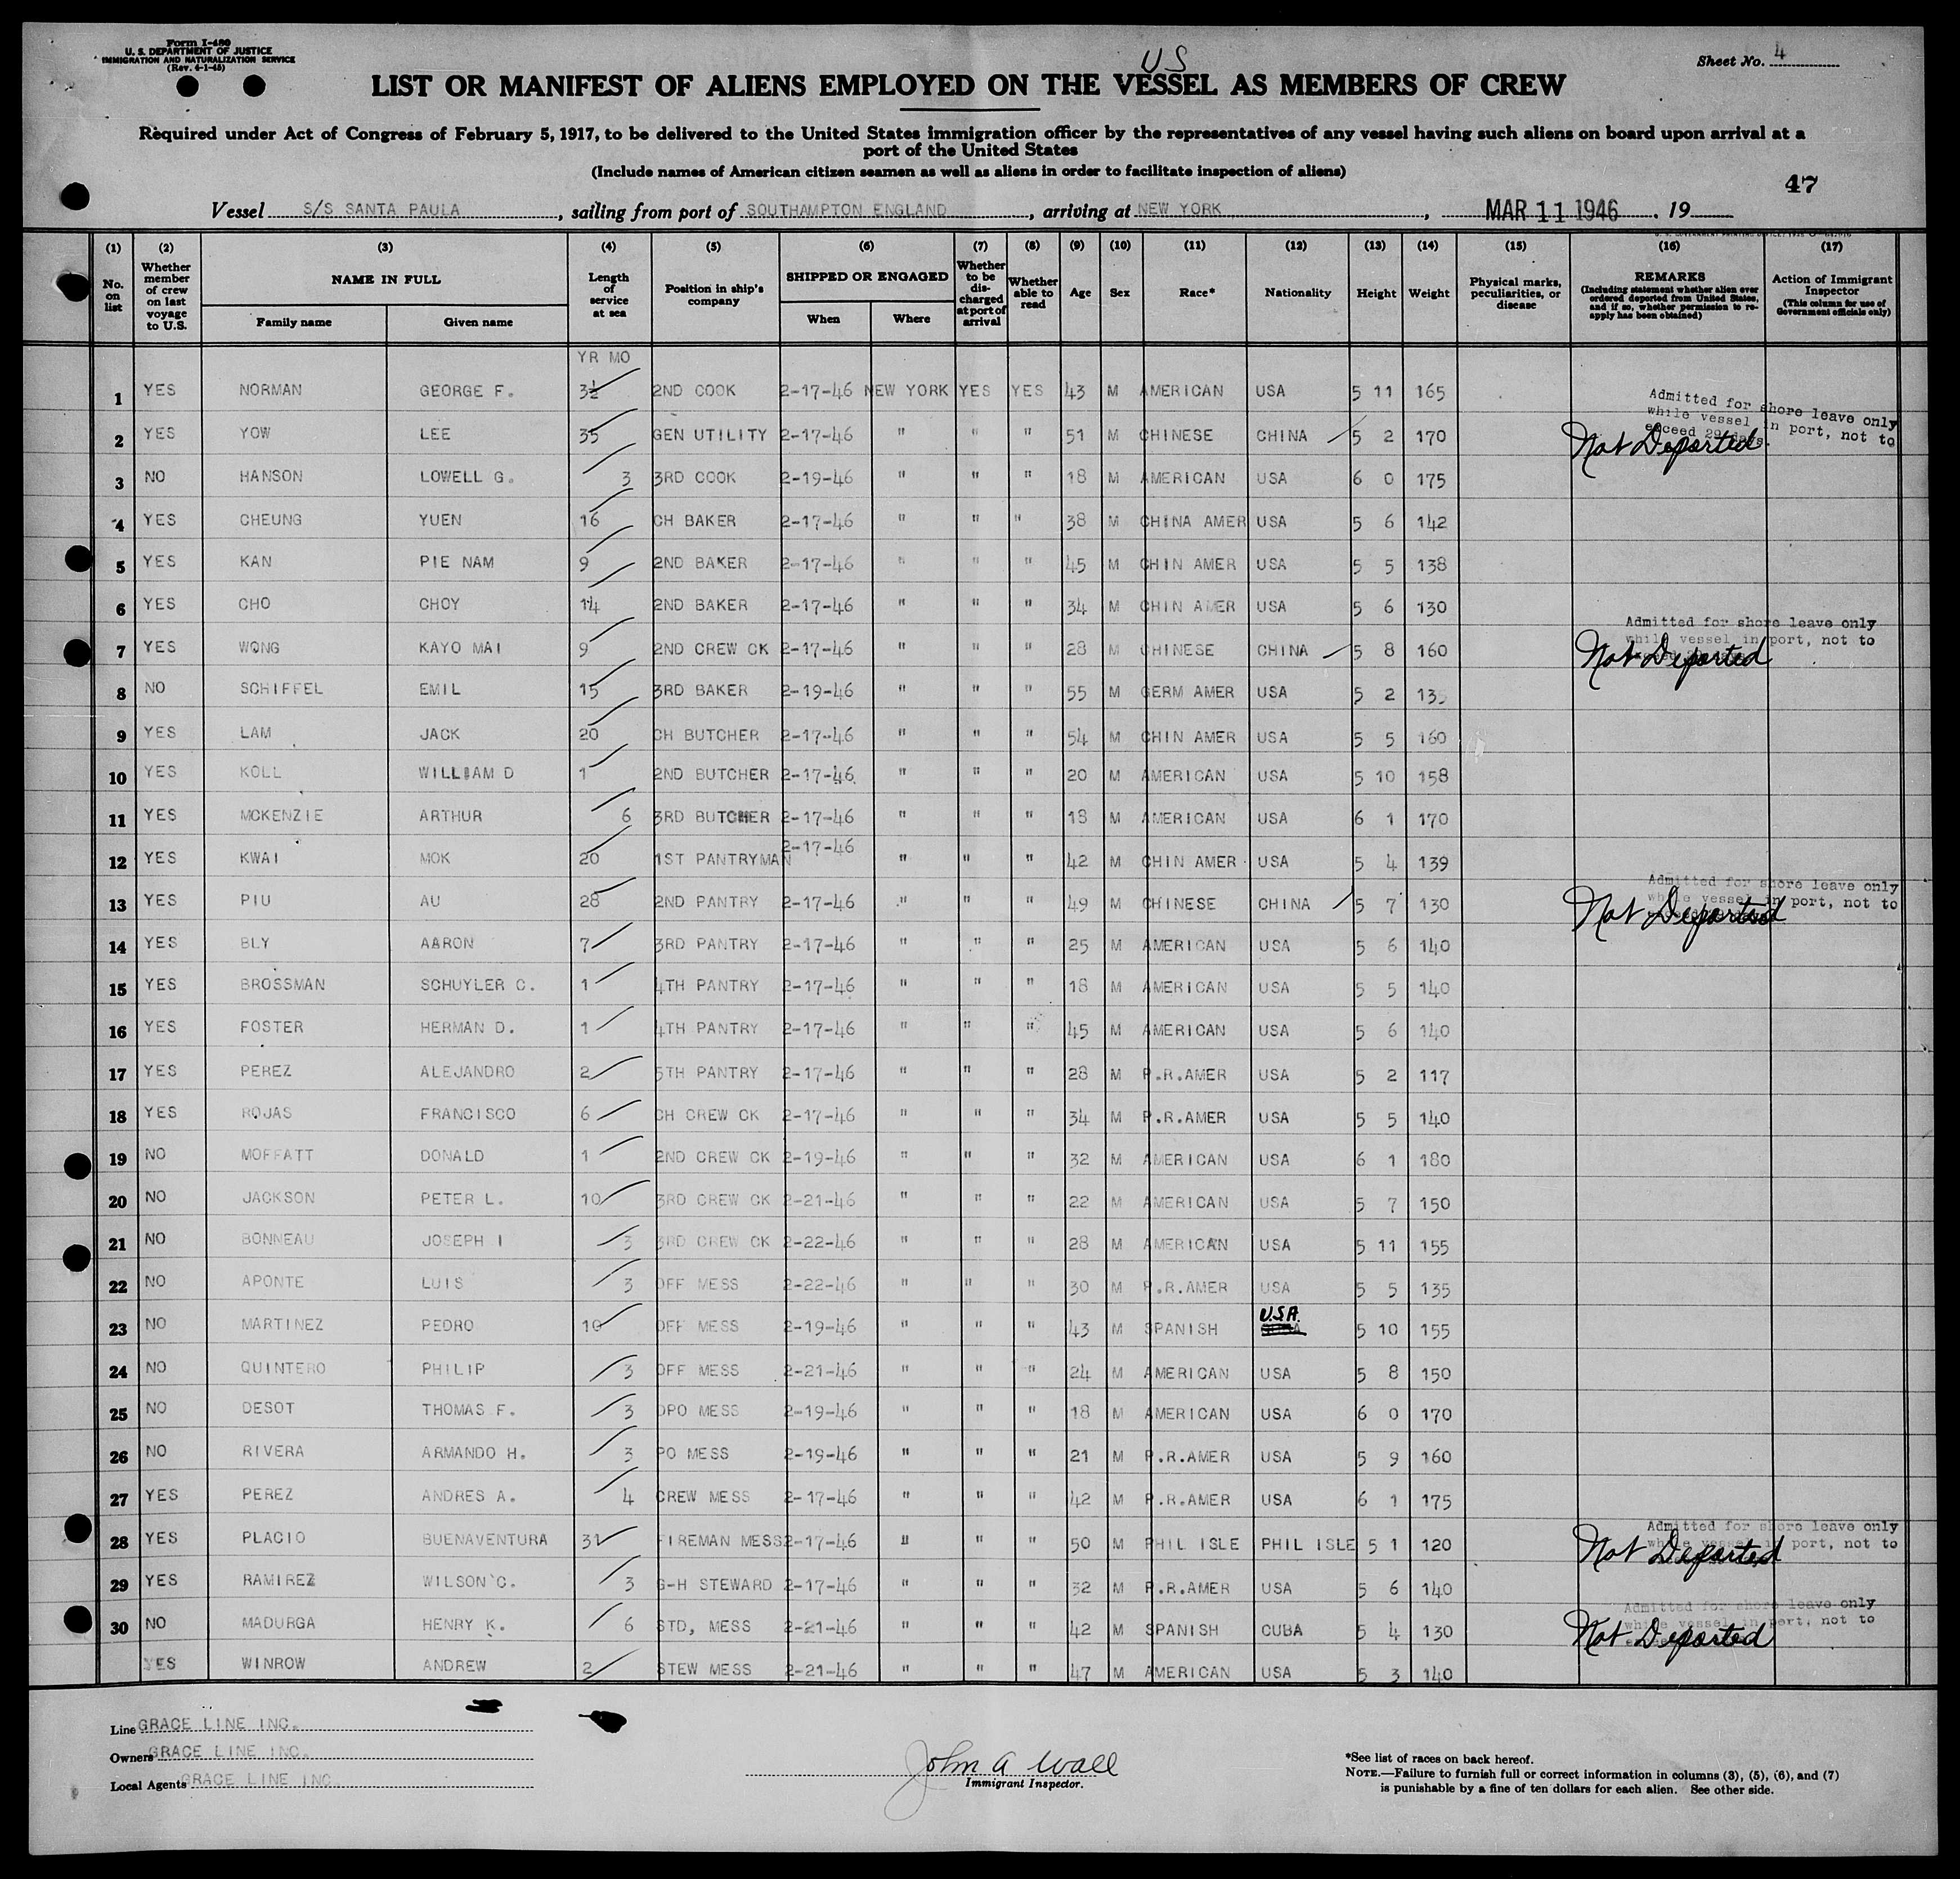 Form I-480
U. S. DEPARTMENT OF JUSTICE
IMMIGRATION AND NATURALIZATION SERVICE
(Rev. 4-1-45)
US
Sheet No. 4
LIST OR MANIFEST OF ALIENS EMPLOYED ON THE VESSEL AS MEMBERS OF CREW
Required under Act of Congress of February 5, 1917, to be delivered to the United States immigration officer by the representatives of any vessel having such aliens on board upon arrival at a
port of the United States
(Include names of American citizen seamen as well as aliens in order to facilitate inspection of aliens)
47
Vessel S/S SANTA PAULA, sailing from port of SOUTHAMPTON ENGLAND, arriving at NEW YORK, MAR 11 1946, 19
(1) (2) (3) (4) (5) (6) (7) (8) (9) (10) (11) (12) (13) (14) (15) (16) (17)
No. on list
Whether member of crew on last voyage to U.S.
NAME IN FULL
Family name
Given name
Length of service at sea
Position in ship's company
SHIPPED OR ENGAGED
When
Where
Whether to be discharged at port of arrival
Whether able to read
Age
Sex
Race*
Nationality
Height
Weight
Physical marks, peculiarities, or disease
REMARKS
(Including statement whether alien ever ordered deported from United States, and if so, whether permission to reapply has been obtained)
Action of Immigrant Inspector
(This column for use of Government officials only)
YR MO
1 YES NORMAN GEORGE F. 3½ 2ND COOK 2-17-46 NEW YORK YES YES 43 M AMERICAN USA 5 11 165
Admitted for shore leave only
while vessel in port, not to
exceed 29 days.
2 YES YOW LEE 35 GEN UTILITY 2-17-46 " " " 51 M CHINESE CHINA 5 2 170 Not Deported
3 NO HANSON LOWELL G. 3 3RD COOK 2-19-46 " " " 18 M AMERICAN USA 6 0 175
4 YES CHEUNG YUEN 16 CH BAKER 2-17-46 " " " 38 M CHINA AMER USA 5 6 142
5 YES KAN PIE NAM 9 2ND BAKER 2-17-46 " " " 45 M CHIN AMER USA 5 5 138
6 YES CHO CHOY 14 2ND BAKER 2-17-46 " " " 34 M CHIN AMER USA 5 6 130
Admitted for shore leave only
while vessel in port, not to
7 YES WONG KAYO MAI 9 2ND CREW CK 2-17-46 " " " 28 M CHINESE CHINA 5 8 160 Not Deported
8 NO SCHIFFEL EMIL 15 3RD BAKER 2-19-46 " " " 55 M GERM AMER USA 5 2 135
9 YES LAM JACK 20 CH BUTCHER 2-17-46 " " " 54 M CHIN AMER USA 5 5 160
10 YES KOLL WILLIAM D 1 2ND BUTCHER 2-17-46 " " " 20 M AMERICAN USA 5 10 158
11 YES MCKENZIE ARTHUR 6 3RD BUTCHER 2-17-46 " " " 18 M AMERICAN USA 6 1 170
12 YES KWAI MOK 20 1ST PANTRYMAN 2-17-46 " " " 42 M CHIN AMER USA 5 4 139
Admitted for shore leave only
while vessel in port, not to
13 YES PIU AU 28 2ND PANTRY 2-17-46 " " " 49 M CHINESE CHINA 5 7 130 Not Deported
14 YES BLY AARON 7 3RD PANTRY 2-17-46 " " " 25 M AMERICAN USA 5 6 140
15 YES BROSSMAN SCHUYLER C. 1 4TH PANTRY 2-17-46 " " " 18 M AMERICAN USA 5 5 140
16 YES FOSTER HERMAN D. 1 4TH PANTRY 2-17-46 " " " 45 M AMERICAN USA 5 6 140
17 YES PEREZ ALEJANDRO 2 5TH PANTRY 2-17-46 " " " 28 M P.R.AMER USA 5 2 117
18 YES ROJAS FRANCISCO 6 CH CREW CK 2-17-46 " " " 34 M P.R.AMER USA 5 5 140
19 NO MOFFATT DONALD 1 2ND CREW CK 2-19-46 " " " 32 M AMERICAN USA 6 1 180
20 NO JACKSON PETER L. 10 3RD CREW CK 2-21-46 " " " 22 M AMERICAN USA 5 7 150
21 NO BONNEAU JOSEPH I 3 3RD CREW CK 2-22-46 " " " 28 M AMERICAN USA 5 11 155
22 NO APONTE LUIS 3 OFF MESS 2-22-46 " " " 30 M P.R.AMER USA 5 5 135
23 NO MARTINEZ PEDRO 10 OFF MESS 2-19-46 " " " 43 M SPANISH U.S.A. 5 10 155
24 NO QUINTERO PHILIP 3 OFF MESS 2-21-46 " " " 24 M AMERICAN USA 5 8 150
25 NO DESOT THOMAS F. 3 DPO MESS 2-19-46 " " " 18 M AMERICAN USA 6 0 170
26 NO RIVERA ARMANDO H. 3 PO MESS 2-19-46 " " " 21 M P.R.AMER USA 5 9 160
27 YES PEREZ ANDRES A. 4 CREW MESS 2-17-46 " " " 42 M P.R.AMER USA 6 1 175
Admitted for shore leave only
while vessel in port, not to
28 YES PLACIO BUENAVENTURA 31 FIREMAN MESS 2-17-46 " " " 50 M PHIL ISLE PHIL ISLE 5 1 120 Not Deported
29 YES RAMIREZ WILSON C. 3 G-H STEWARD 2-17-46 " " " 32 M P.R.AMER USA 5 6 140
Admitted for shore leave only
while vessel in port, not to
30 NO MADURGA HENRY K. 6 STD, MESS 2-21-46 " " " 42 M SPANISH CUBA 5 4 130 Not Deported
YES WINROW ANDREW 2 STEW MESS 2-21-46 " " " 47 M AMERICAN USA 5 3 140
Line GRACE LINE INC.
Owners GRACE LINE INC.
Local Agents GRACE LINE INC.
John A Wall
Immigrant Inspector.
*See list of races on back hereof.
NOTE.—Failure to furnish full or correct information in columns (3), (5), (6), and (7)
is punishable by a fine of ten dollars for each alien. See other side.